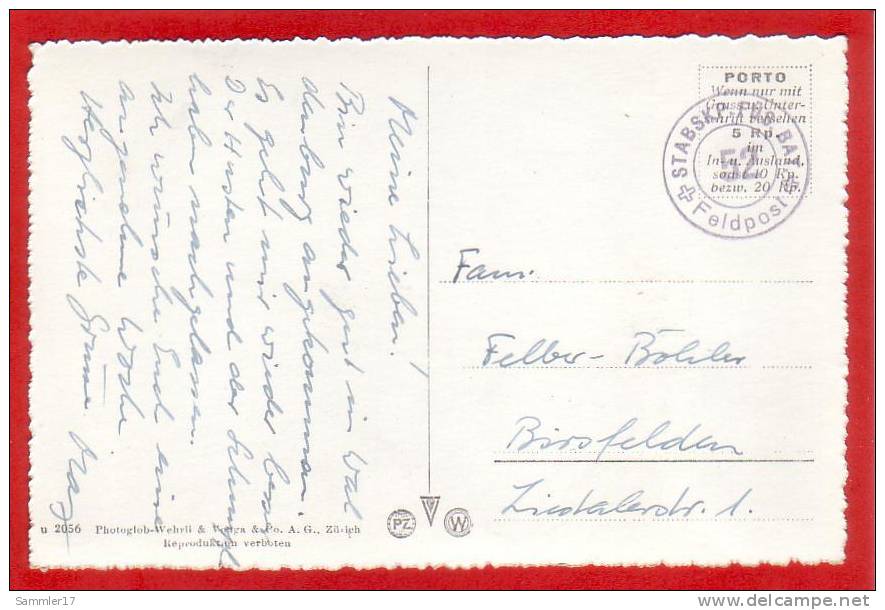 Meine Lieben!
Bin wieder gut in Wal
denburg angekommen
Es geht mir wieder besser
Der Husten und der Schnupf
haben nachgelassen.
Ich wünsche Euch eine
angenehme Woche
Herzlichste Grüsse Max
PORTO
Wenn nur mit
Gruss u. Unter-
schrift versehen
5 Rp.
im
In- u. Ausland,
sonst 10 Rp.
bezw. 20 Rp.
STABSKP. BAT.
52
Feldpost
Fam.
Felber-Böhler
Birsfelden
Liestalerstr. 1.
u 2056 Photoglob-Wehrli & Vouga & Co. A. G., Zürich
Reproduktion verboten
PZ V W
Sammler17
delcampe.net